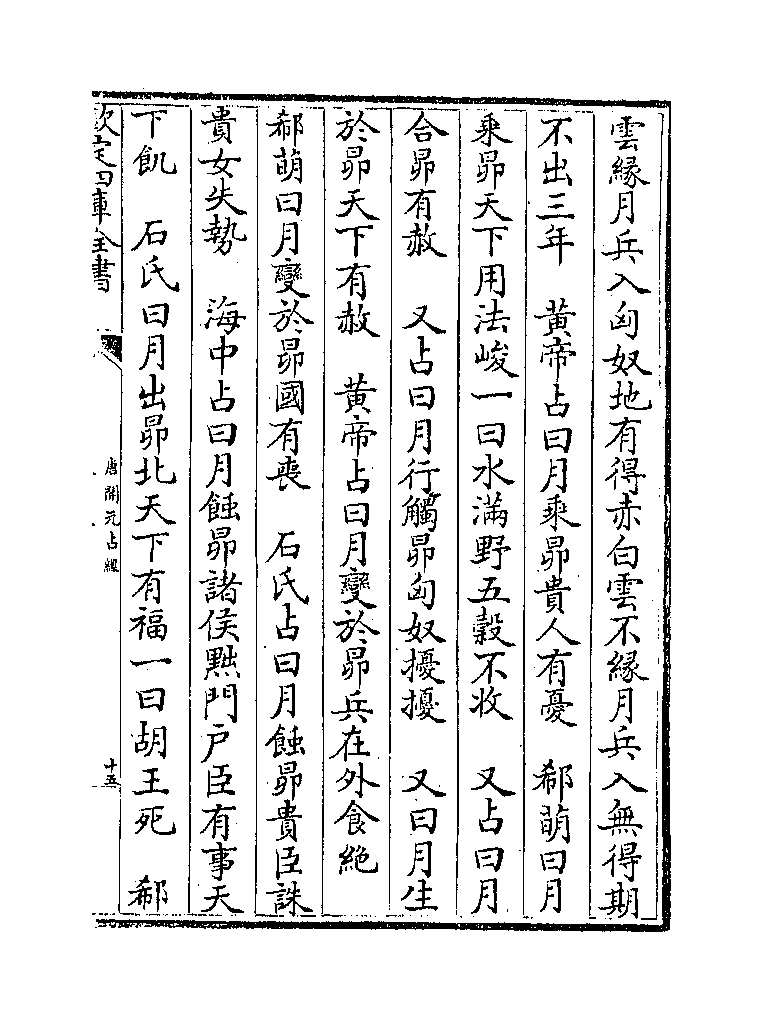 雲緣月兵入匈奴地有得赤白雲不緣月兵入無得期
不出三年　黃帝占曰月乘昴貴人有憂　郗萌曰月
乘昴天下用法峻一曰水滿野五穀不收　又占曰月
合昴有赦　又占曰月行觸昴匈奴擾擾　又曰月生
於昴天下有赦　黃帝占曰月變於昴兵在外食絶
郗萌曰月變於昴國有喪　石氏占曰月蝕昴貴臣誅
貴女失勢　海中占曰月蝕昴諸侯黜門戶臣有事天
下飢　石氏曰月出昴北天下有福一曰胡王死　郗
欽定四庫全書
唐開元占經
十五